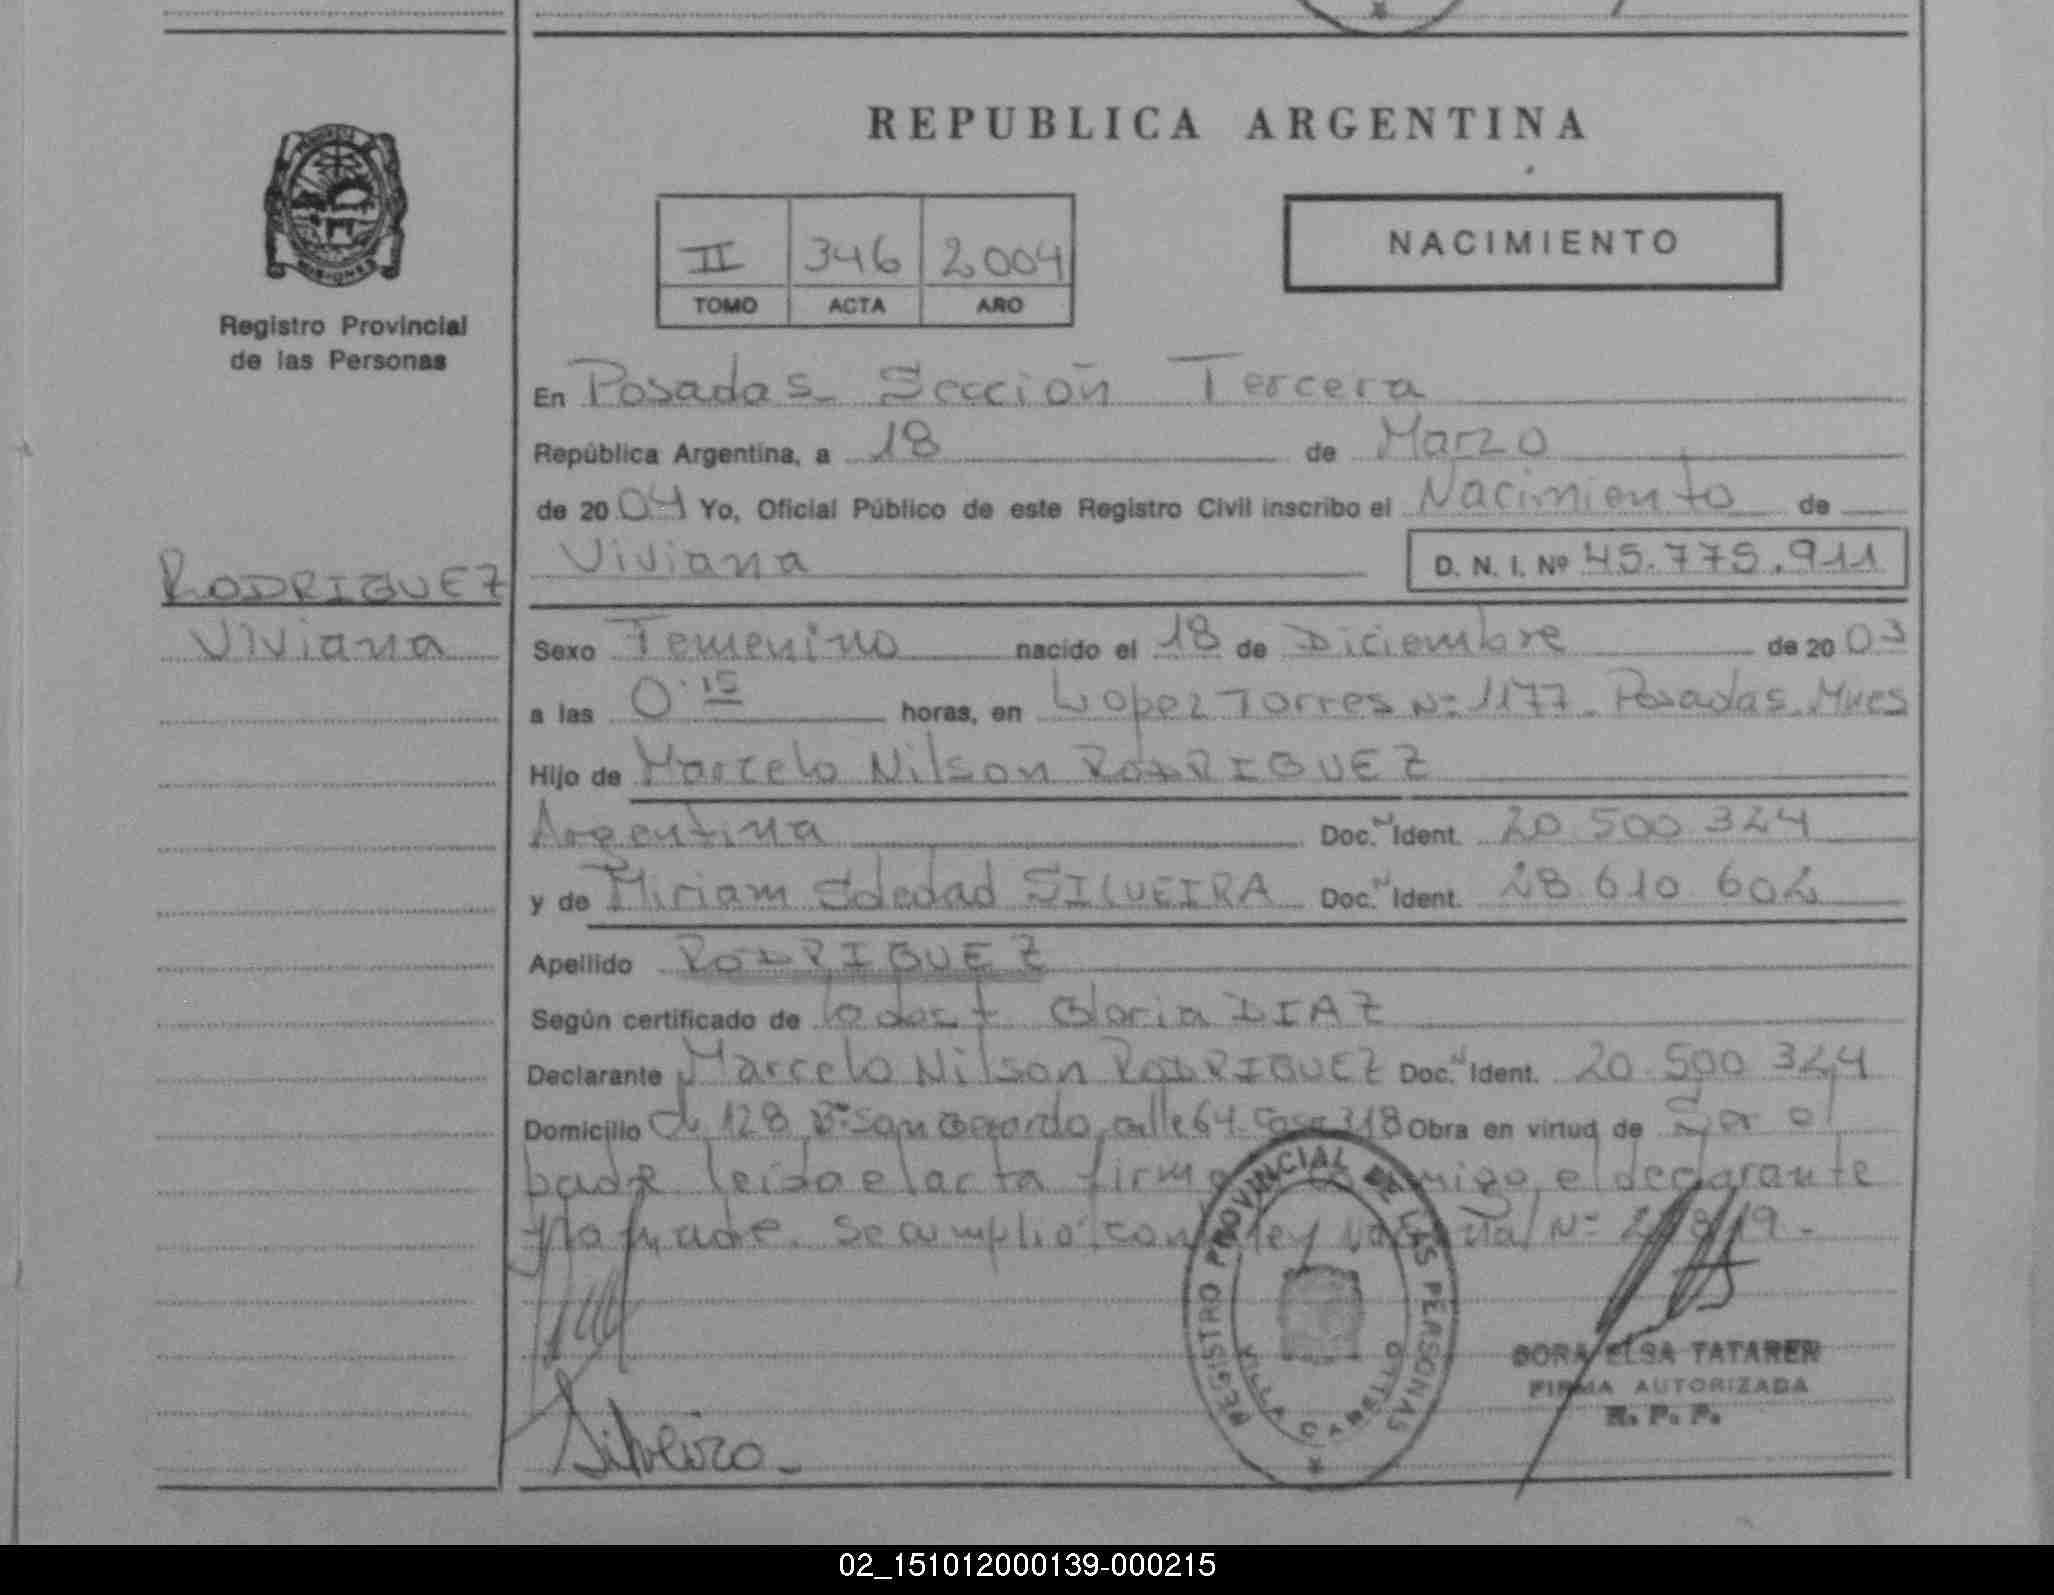 REPUBLICA ARGENTINA
MISIONES
Registro Provincial
de las Personas
II 346 2004
TOMO ACTA AÑO
NACIMIENTO
En Posadas Sección Tercera
República Argentina, a 18 de Marzo
de 2004 Yo, Oficial Público de este Registro Civil inscribo el Nacimiento de
Viviana D. N. I. Nº 45.775.911
RODRIGUEZ
Viviana
Sexo Femenino nacido el 18 de Diciembre de 2003
a las 0:15 horas, en Lopez Torres Nº 1177. Posadas. Mnes
Hijo de Marcelo Nilson RODRIGUEZ
Argentina Doc. Ident. 20.500.324
y de Miriam Soledad SILVEIRA Doc. Ident. 28.610.602
Apellido RODRIGUEZ
Según certificado de la obst. Gloria DIAZ
Declarante Marcelo Nilson RODRIGUEZ Doc. Ident. 20.500.324
Domicilio Ch 128 Bº San Gerardo, calle 64 Casa 318 Obra en virtud de Ser el
padre leída el acta firma conmigo el declarante
y la madre. Se cumplió con ley Nº
REGISTRO PROVINCIAL DE LAS PERSONAS
VILLA CABELLO
Silveira
DORA ELSA TATAREN
FIRMA AUTORIZADA
R. P. P.
02_151012000139-000215